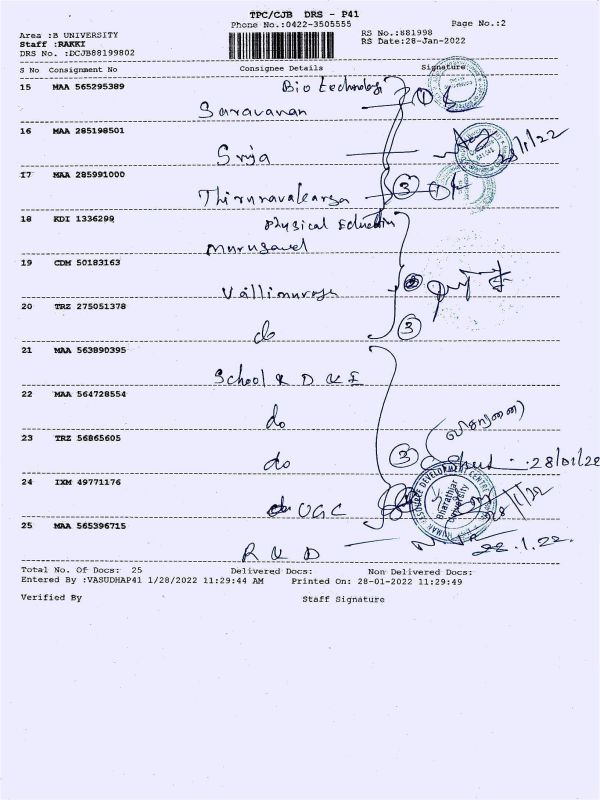 TPC/CJB DRS - P41
Phone No.:0422-3505555
Page No.:2
Area :B UNIVERSITY
RS No.:881998
Staff :RAKKI
RS Date:28-Jan-2022
DRS No. :DCJB88199802
S No Consignment No Consignee Details Signature
15 MAA 565295389
Bio technology
Saravanan
16 MAA 285198501
Srija
28/1/22
17 MAA 285991000
3
18 KDI 1336299
Physical Education
Murugavel
19 CDM 50183163
20 TRZ 275051378
do
3
21 MAA 563890395
School
22 MAA 564728554
do
23 TRZ 56865605
do
3
28/01/22
24 IXM 49771176
UGC
Bharathiar University
HUMAN RESOURCE DEVELOPMENT CENTRE
28/1/22
25 MAA 565396715
22.1.22.
Total No. Of Docs: 25 Delivered Docs: Non Delivered Docs:
Entered By :VASUDHAP41 1/28/2022 11:29:44 AM Printed On: 28-01-2022 11:29:49
Verified By Staff Signature